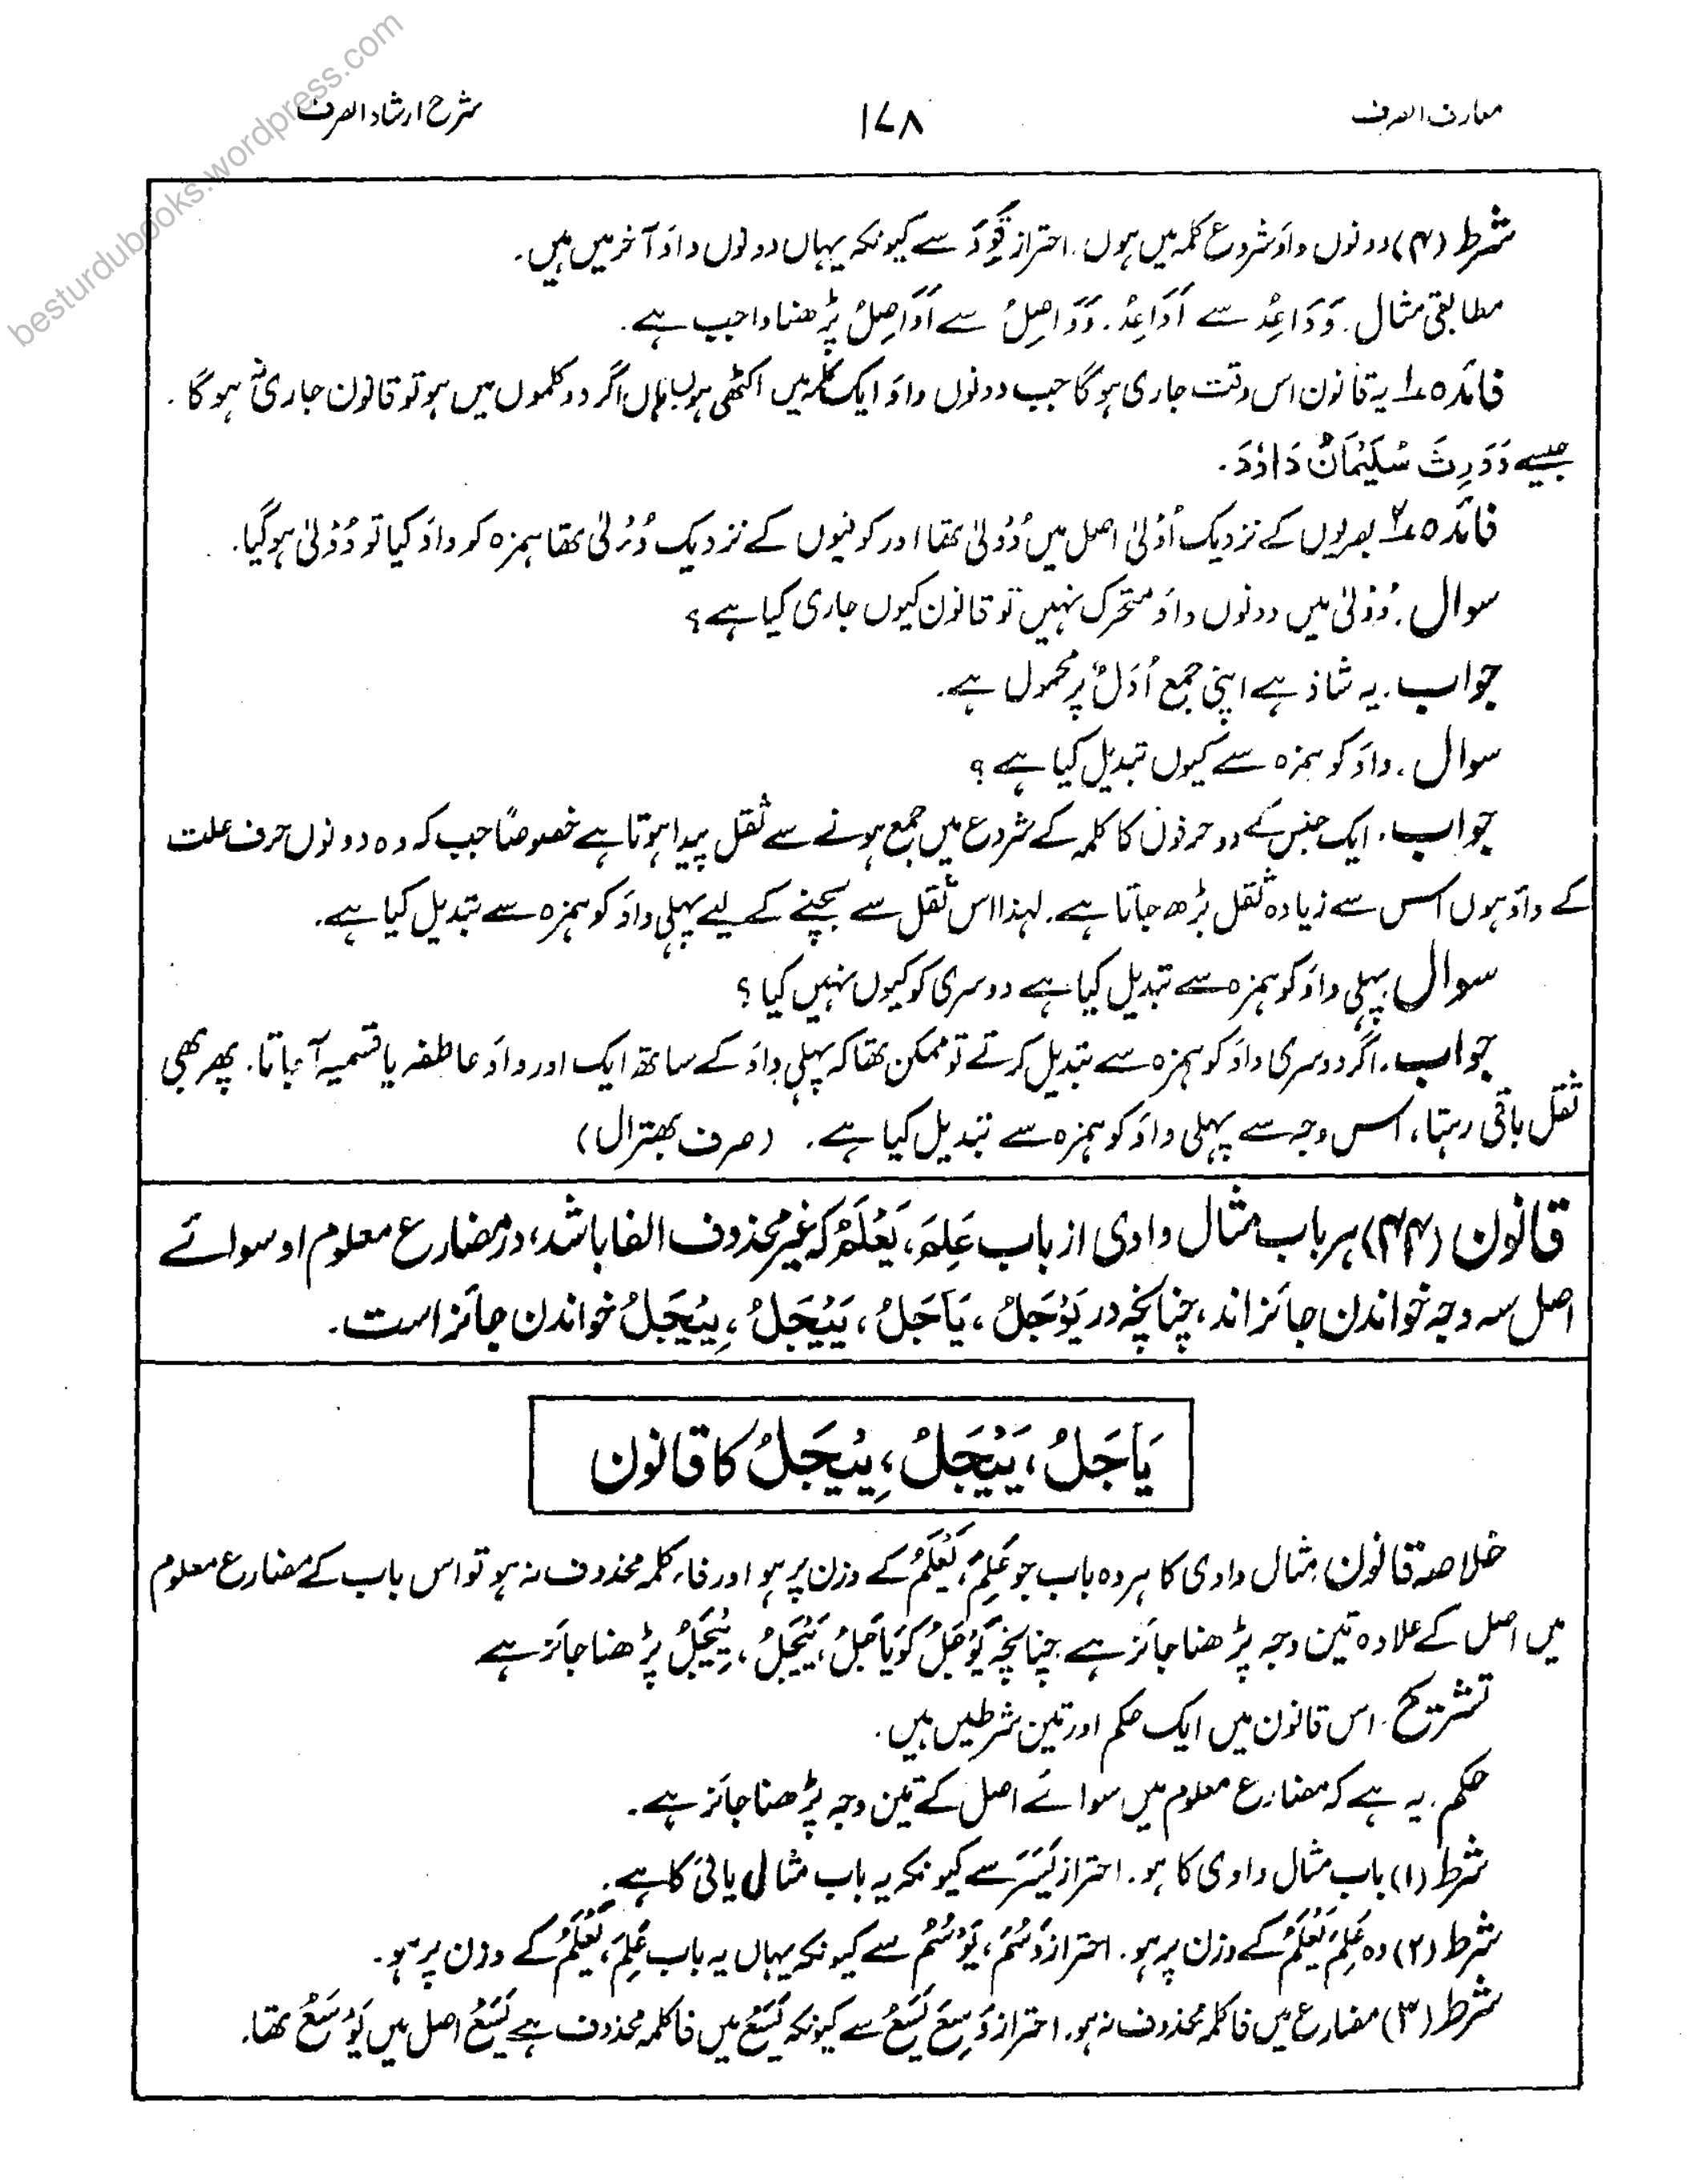 معارف الصرف
۱۷۸
شرح ارشاد الصرف
besturdubooks.wordpress.com
شرط (۴) دونوں واؤ شروع کلمہ میں ہوں۔ احتراز قَوَوَ سے کیونکہ یہاں دونوں واؤ آخر میں ہیں۔
مطابقی مثال۔ وَوَاعِدُ سے اَوَاعِدُ۔ وَوَاصِلُ سے اَوَاصِلُ پڑھنا واجب ہے۔
فائدہ ۱ یہ قانون اس وقت جاری ہوگا جب دونوں واؤ ایک کلمہ میں اکٹھی ہوں ہاں اگر دو کلموں میں ہو تو قانون جاری نہ ہوگا۔
جیسے وَوَرِثَ سُلَیْمَانُ دَاوٗدَ۔
فائدہ ۲ بصریوں کے نزدیک اُوْلیٰ اصل میں وُوْلیٰ تھا اور کوفیوں کے نزدیک وُئْلیٰ تھا ہمزہ کو واؤ کیا تو وُوْلیٰ ہوگیا۔
سوال۔ وُوْلیٰ میں دونوں واؤ متحرک نہیں تو قانون کیوں جاری کیا ہے؟
جواب۔ یہ شاذ ہے اپنی جمع اُوَلٌ پر محمول ہے۔
سوال۔ واؤ کو ہمزہ سے کیوں تبدیل کیا ہے؟
جواب۔ ایک جنس کے دو حرفوں کا کلمہ کے شروع میں جمع ہونے سے ثقل پیدا ہوتا ہے خصوصًا جب کہ وہ دونوں حرف علت
کے واؤ ہوں اس سے زیادہ ثقل بڑھ جاتا ہے۔ لہذا اس ثقل سے بچنے کے لیے پہلی واؤ کو ہمزہ سے تبدیل کیا ہے۔
سوال پہلی واؤ کو ہمزہ سے تبدیل کیا ہے دوسری کو کیوں نہیں کیا؟
جواب۔ اگر دوسری واؤ کو ہمزہ سے تبدیل کرتے تو ممکن تھا کہ پہلی واؤ کے ساتھ ایک اور واؤ عاطفہ یا قسمیہ آ جاتا۔ پھر بھی
ثقل باقی رہتا، اس وجہ سے پہلی واؤ کو ہمزہ سے تبدیل کیا ہے۔ (صرف بھترال)
قانون (۴۴) ہر باب مثال واوی از باب عَلِمَ، یَعْلَمُ کہ غیر محذوف الفا باشد، در مضارع معلوم او سوائے
اصل سہ وجہ خواندن جائز اند، چنانچہ در یَوْجَلُ، یَاجَلُ، یَیْجَلُ، یِیْجَلُ خواندن جائز است۔
یَاجَلُ، یَیْجَلُ، یِیْجَلُ کا قانون
خلاصہ قانون۔ مثال واوی کا ہر وہ باب جو عَلِمَ، یَعْلَمُ کے وزن پر ہو اور فاء کلمہ محذوف نہ ہو تو اس باب کے مضارع معلوم
میں اصل کے علاوہ تین وجہ پڑھنا جائز ہے چنانچہ یَوْجَلُ کو یَاجَلُ، یَیْجَلُ، یِیْجَلُ پڑھنا جائز ہے
تشریح۔ اس قانون میں ایک حکم اور تین شرطیں ہیں۔
حکم۔ یہ ہے کہ مضارع معلوم میں سوائے اصل کے تین وجہ پڑھنا جائز ہے۔
شرط (۱) باب مثال واوی کا ہو۔ احتراز یَسَرَ سے کیونکہ یہ باب مثال یائی کا ہے۔
شرط (۲) وہ عَلِمَ یَعْلَمُ کے وزن پر ہو۔ احتراز وَسُمَ، یَوْسُمُ سے کیونکہ یہاں یہ باب عَلِمَ، یَعْلَمُ کے وزن پر ہو۔
شرط (۳) مضارع میں فا کلمہ محذوف نہ ہو۔ احتراز وَسِعَ یَسَعُ سے کیونکہ یَسَعُ میں فا کلمہ محذوف ہے یَسَعُ اصل میں یَوْسَعُ تھا۔